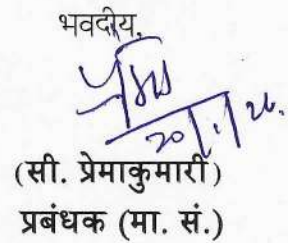 भवदीय,
20/1/26.
(सी. प्रेमाकुमारी)
प्रबंधक (मा. सं.)